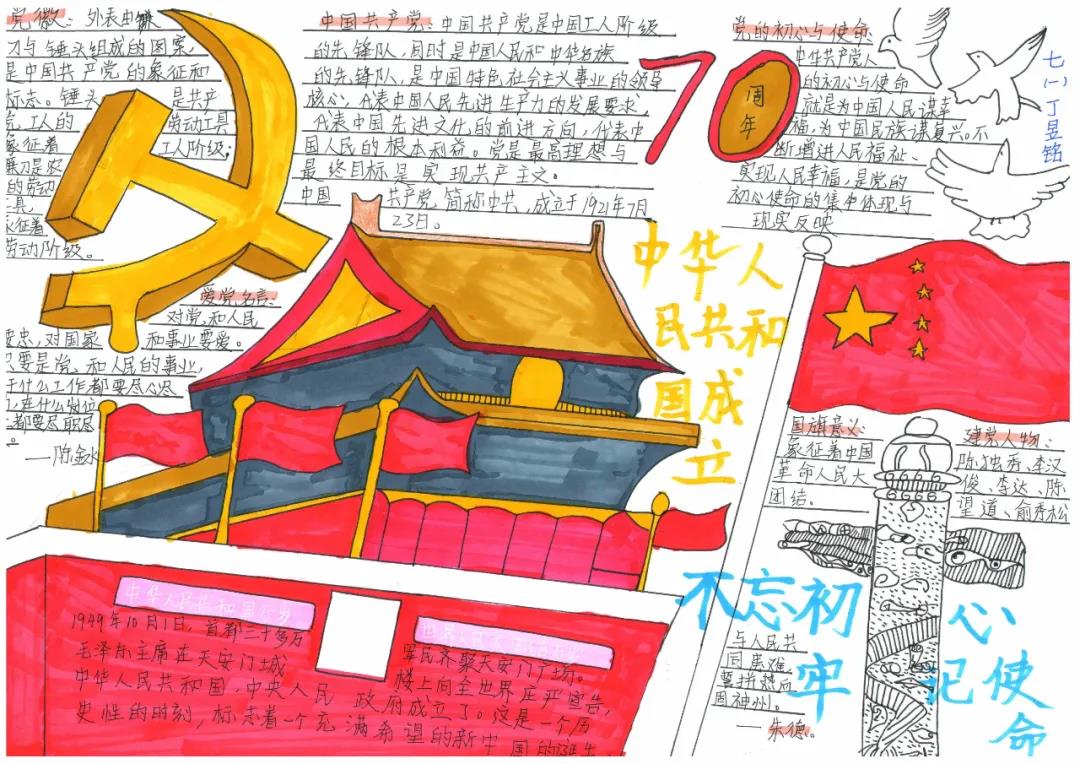 党徽：外表由镰
刀与锤头组成的图案，
是中国共产党的象征和
标志。锤头 是共产
工人的 劳动工具
象征着 工人阶级；
镰刀是农
的劳动
工具，
象征着
劳动阶级。
中国共产党：中国共产党是中国工人阶级
的先锋队，同时是中国人民和中华名族
的先锋队，是中国特色社会主义事业的领导
核心，代表中国人民先进生产力的发展要求，
代表中国先进文化的前进方向，代表中
国人民的根本利益。党是最高理想与
最终目标是实现共产主义。
中国 共产党，简称中共，成立于1921年7月
23日。
70
周年
党的初心与使命：
中华共产党人
的初心与使命
就是为中国人民谋幸
福，为中国民族谋复兴。不
断增进人民福祉、
实现人民幸福，是党的
初心使命的集中体现与
现实反映
七（一）丁昱铭
爱党名言：
对党，和人民
要忠，对国家 和事业要爱。
只要是党、和人民的事业，
干什么工作都要尽心尽
在什么岗位
都要尽职尽
。
中华人
民共和
国成
立
国旗意义：
象征着中国
革命人民大
团结。
建党人物：
陈独秀、李汉
俊、李达、陈
望道、俞秀松
不忘初 心
牢 记使
命
与人民共
同患难，
誓拼热血
固神州。
——朱德。
中华人民共和国
1949年10月1日，首都三十多万 军民齐聚天安门广场。
毛泽东主席在天安门城 楼上向全世界庄严宣告，
中华人民共和国，中央人民 政府成立了。这是一个历
史性的时刻，标志着一个充满希望的新中国的诞生